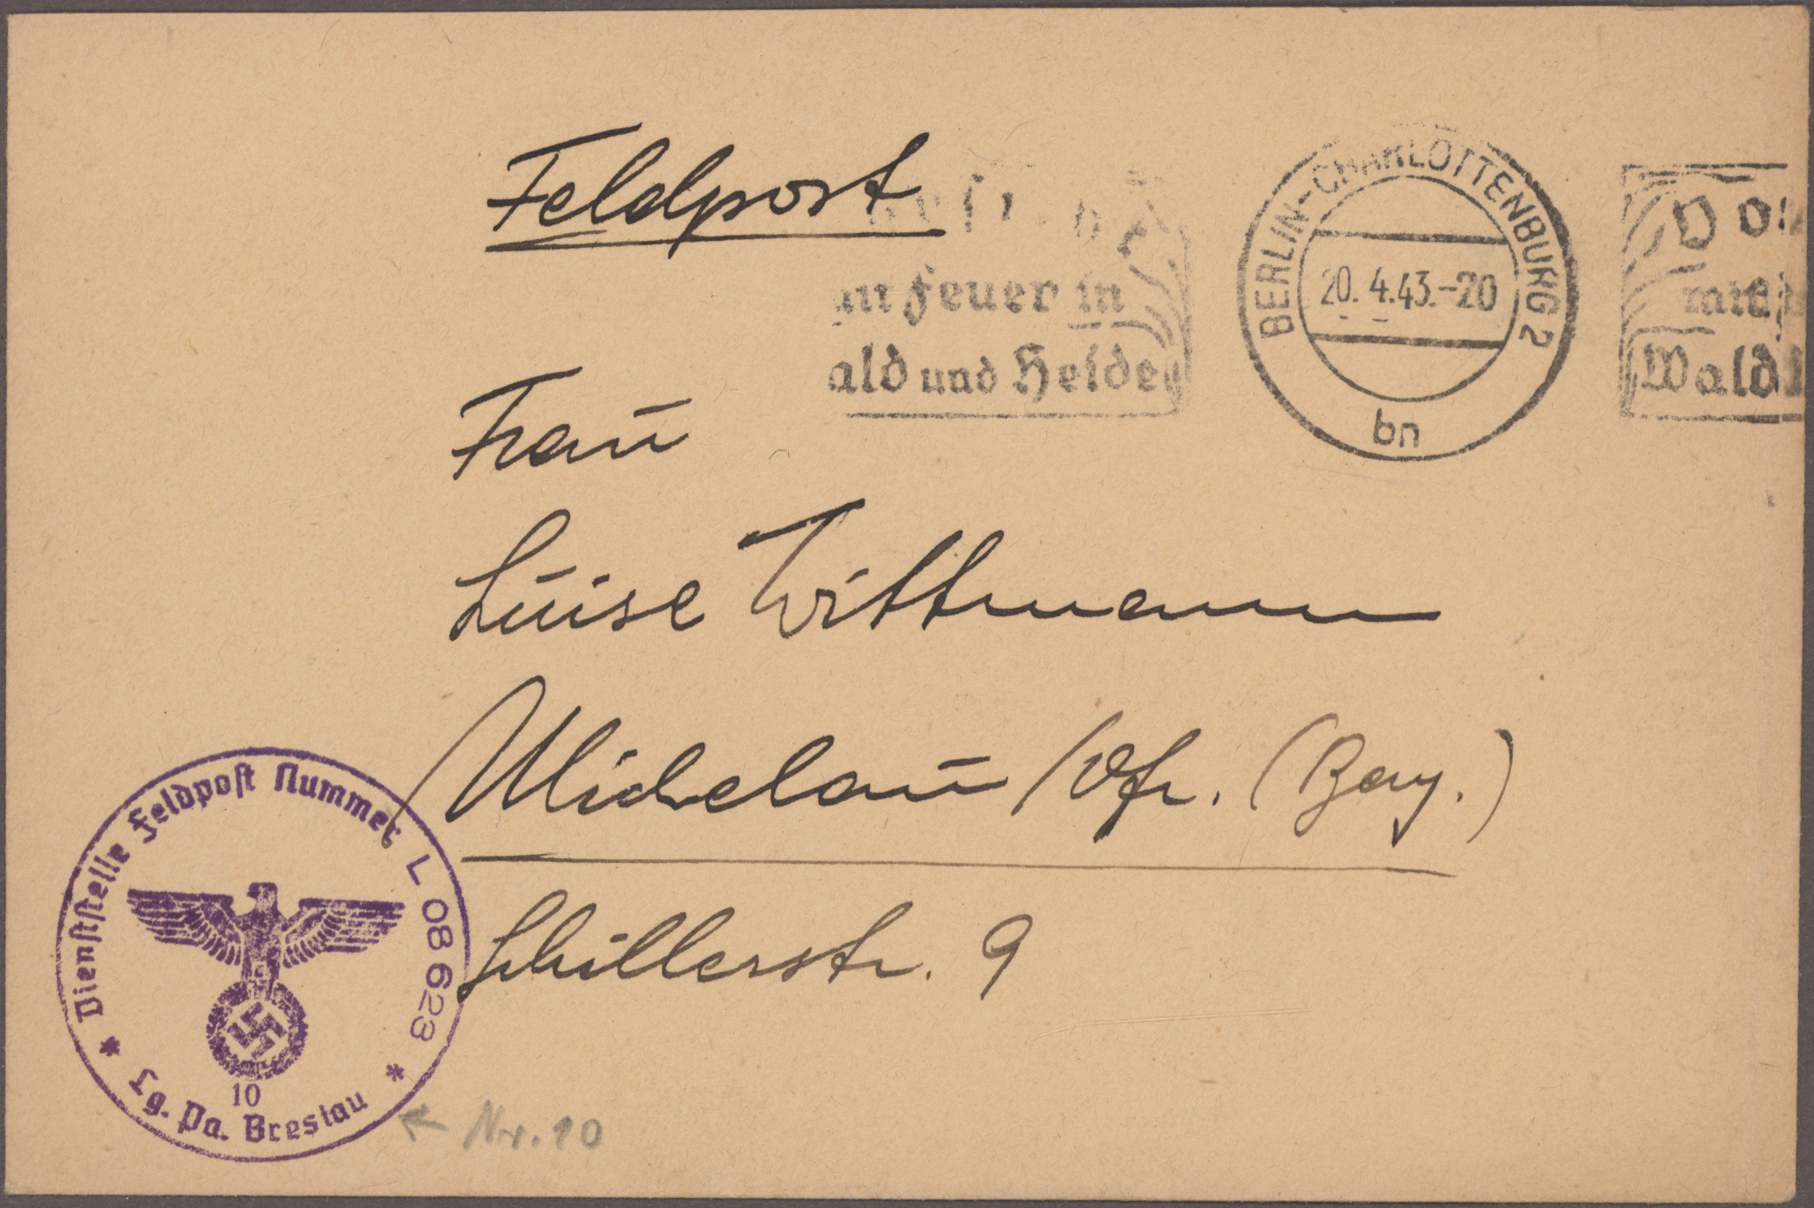 Feldpost
an Feuer in
ald und Heide
BERLIN-CHARLOTTENBURG 2
20. 4.43.-20
bn
Vo
mit
Wald
Frau
Luise Wittmann
Michelau /Ofr. (Bay.)
Schillerstr. 9
Dienststelle Feldpost Nummer L 08 623
10
* Lg. Pa. Breslau *
← Nr. 10